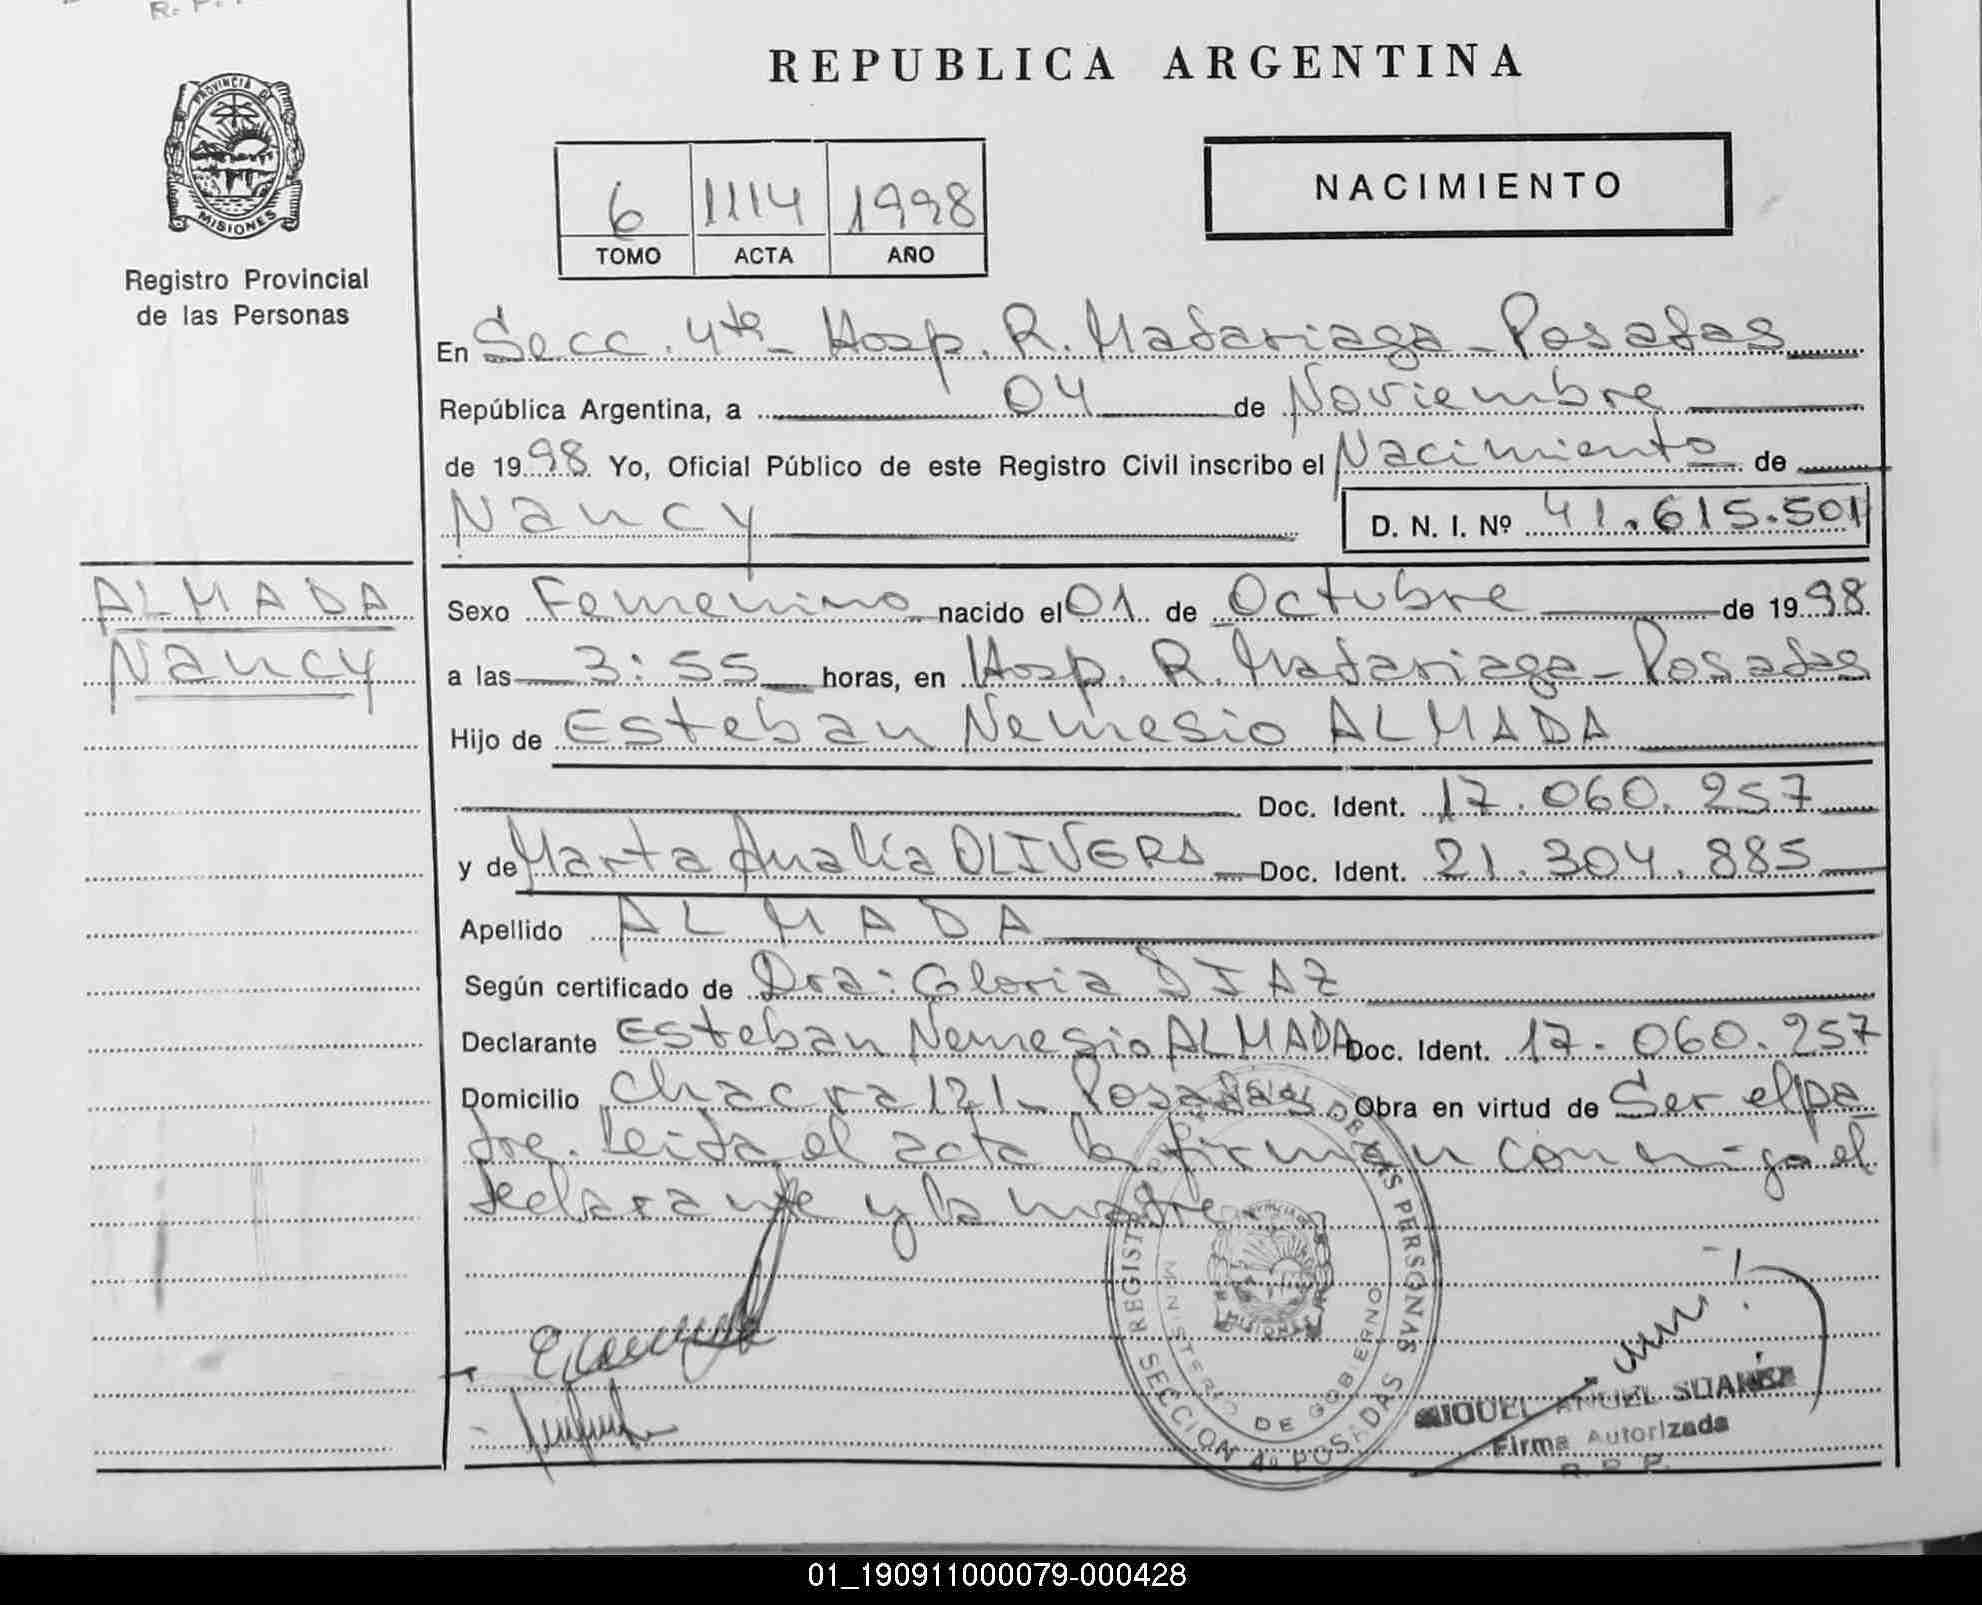 R. P. P.
REPUBLICA ARGENTINA
PROVINCIA DE
MISIONES
Registro Provincial
de las Personas
6 1114 1998
TOMO ACTA AÑO
NACIMIENTO
En Secc. 4ta - Hosp. R. Madariaga - Posadas
República Argentina, a 04 de Noviembre
de 1998 Yo, Oficial Público de este Registro Civil inscribo el Nacimiento de
Nancy D. N. I. Nº 41.615.501
ALMADA
Nancy
Sexo Femenino nacido el 01 de Octubre de 1998
a las 3:55 horas, en Hosp. R. Madariaga - Posadas
Hijo de Esteban Nemesio ALMADA
Doc. Ident. 17.060.257
y de Marta Analía OLIVERA Doc. Ident. 21.304.885
Apellido ALMADA
Según certificado de Dra: Gloria DIAZ
Declarante Esteban Nemesio ALMADA Doc. Ident. 17.060.257
Domicilio Chacra 121 - Posadas. Obra en virtud de Ser el pa
dre. Leída el acta la firman conmigo el
declarante y la madre.
REGISTRO DE LAS PERSONAS
MINISTERIO DE GOBIERNO
MISIONES
SECCION 4º POSADAS
MIGUEL ANGEL SUAREZ
Firma Autorizada
R. P. P.
01_190911000079-000428